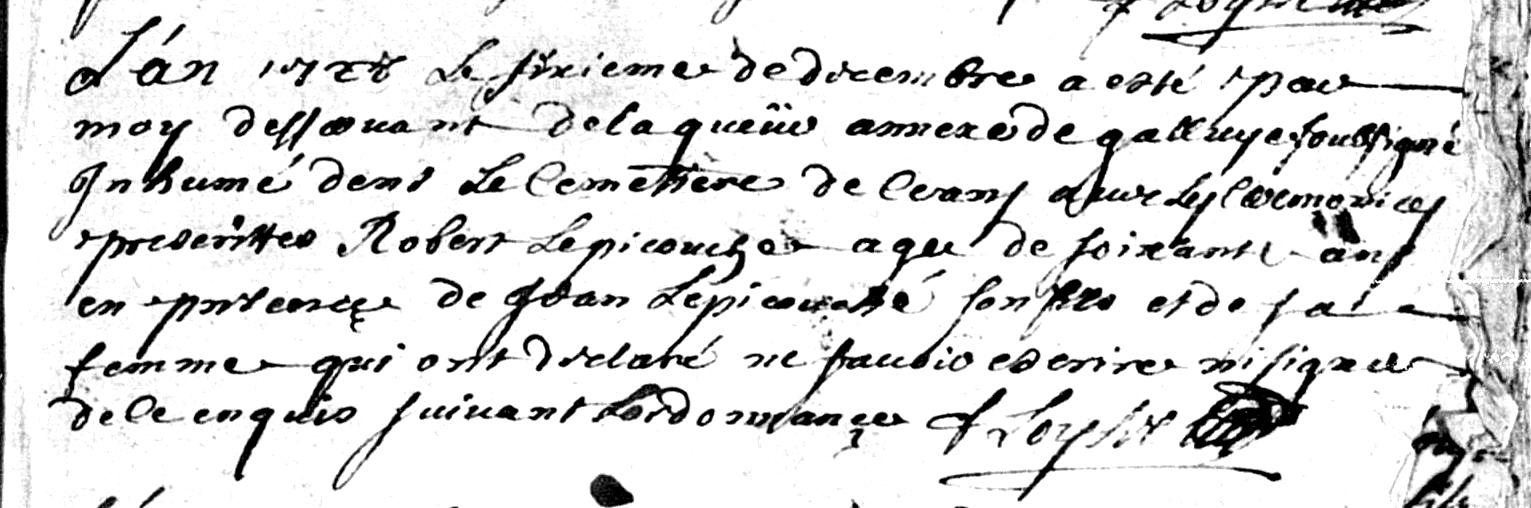 L'án 1728 Le sixieme de decembre a esté par
moy desservant de la queüe annexe de galluye soussigné
Inhumé dens Le Cemetiere de ceans avec les ceremonies
prescrittes Robert Lepicouche agee de soixante ans
en presence de Jean Lepicouché son fils et de sa
femme qui ont declaré ne sauoir escrire ni signer
de ce enquis suivant Lordonnance f Loyset